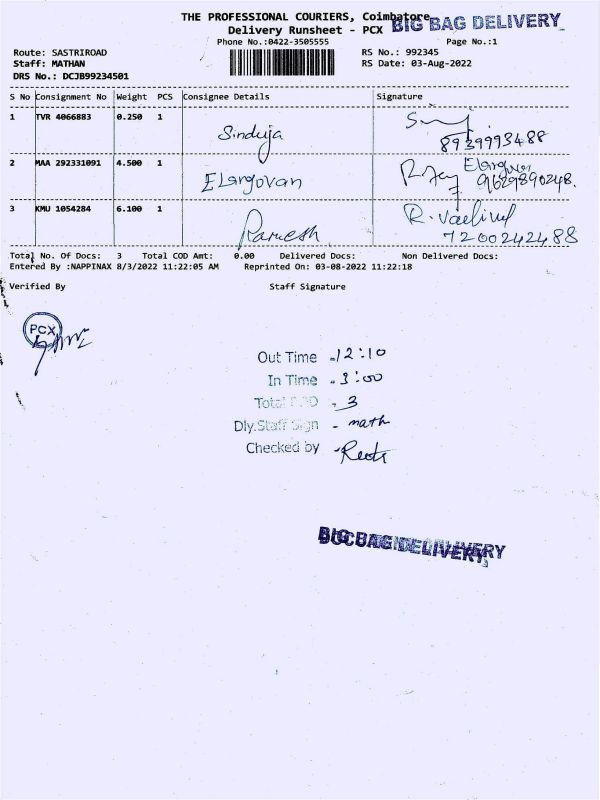 THE PROFESSIONAL COURIERS, Coimbatore
BIG BAG DELIVERY
Delivery Runsheet - PCX
Phone No.:0422-3505555 Page No.:1
Route: SASTRIROAD RS No.: 992345
Staff: MATHAN RS Date: 03-Aug-2022
DRS No.: DCJB99234501
S No Consignment No Weight PCS Consignee Details Signature
1 TVR 4066883 0.250 1 Sinduja
8939993488
2 MAA 292331091 4.500 1 Elangovan
9629890248.
3 KMU 1054284 6.100 1 Ramesh
7200242488
Total No. Of Docs: 3 Total COD Amt: 0.00 Delivered Docs: Non Delivered Docs:
Entered By :NAPPINAX 8/3/2022 11:22:05 AM Reprinted On: 03-08-2022 11:22:18
Verified By Staff Signature
PCX
Out Time - 12:10
In Time - 3:00
Total - 3
Dly.Staff Sign - math
Checked by
BIG BAG DELIVERY